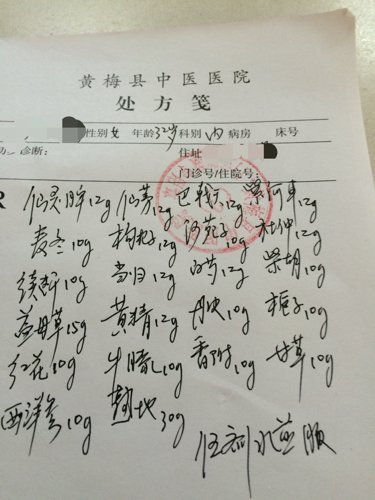 黄梅县中医医院
处方笺
性别 女 年龄 32岁 科别 内 病房 床号
诊断: 住址
门诊号/住院号:
R
仙灵脾12g 仙茅12g 巴戟天12g 紫河车12g
麦冬10g 枸杞子10g 沙苑子10g 杜仲12g
续断10g 当归12g 白芍12g 柴胡10g
益母草15g 黄精12g 丹皮10g 栀子10g
红花10g 牛膝10g 香附10g 甘草10g
西洋参10g 熟地30g
伍剂水煎服